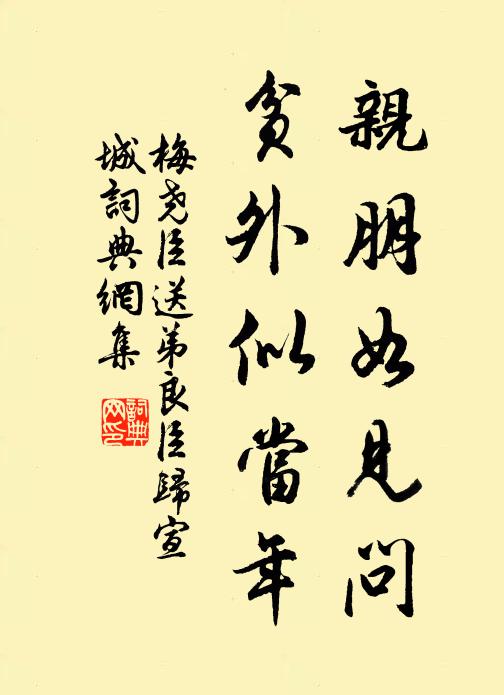 親朋如見問
貧外似當年
梅尧臣送弟良臣歸宣
城詞典網集
詞典
网印